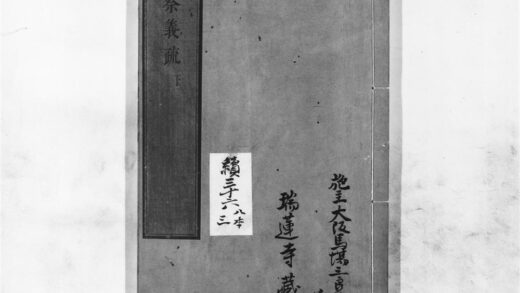 祭義疏 下
續三十六 八本
三
瑞蓮寺藏
施主大阪馬場三